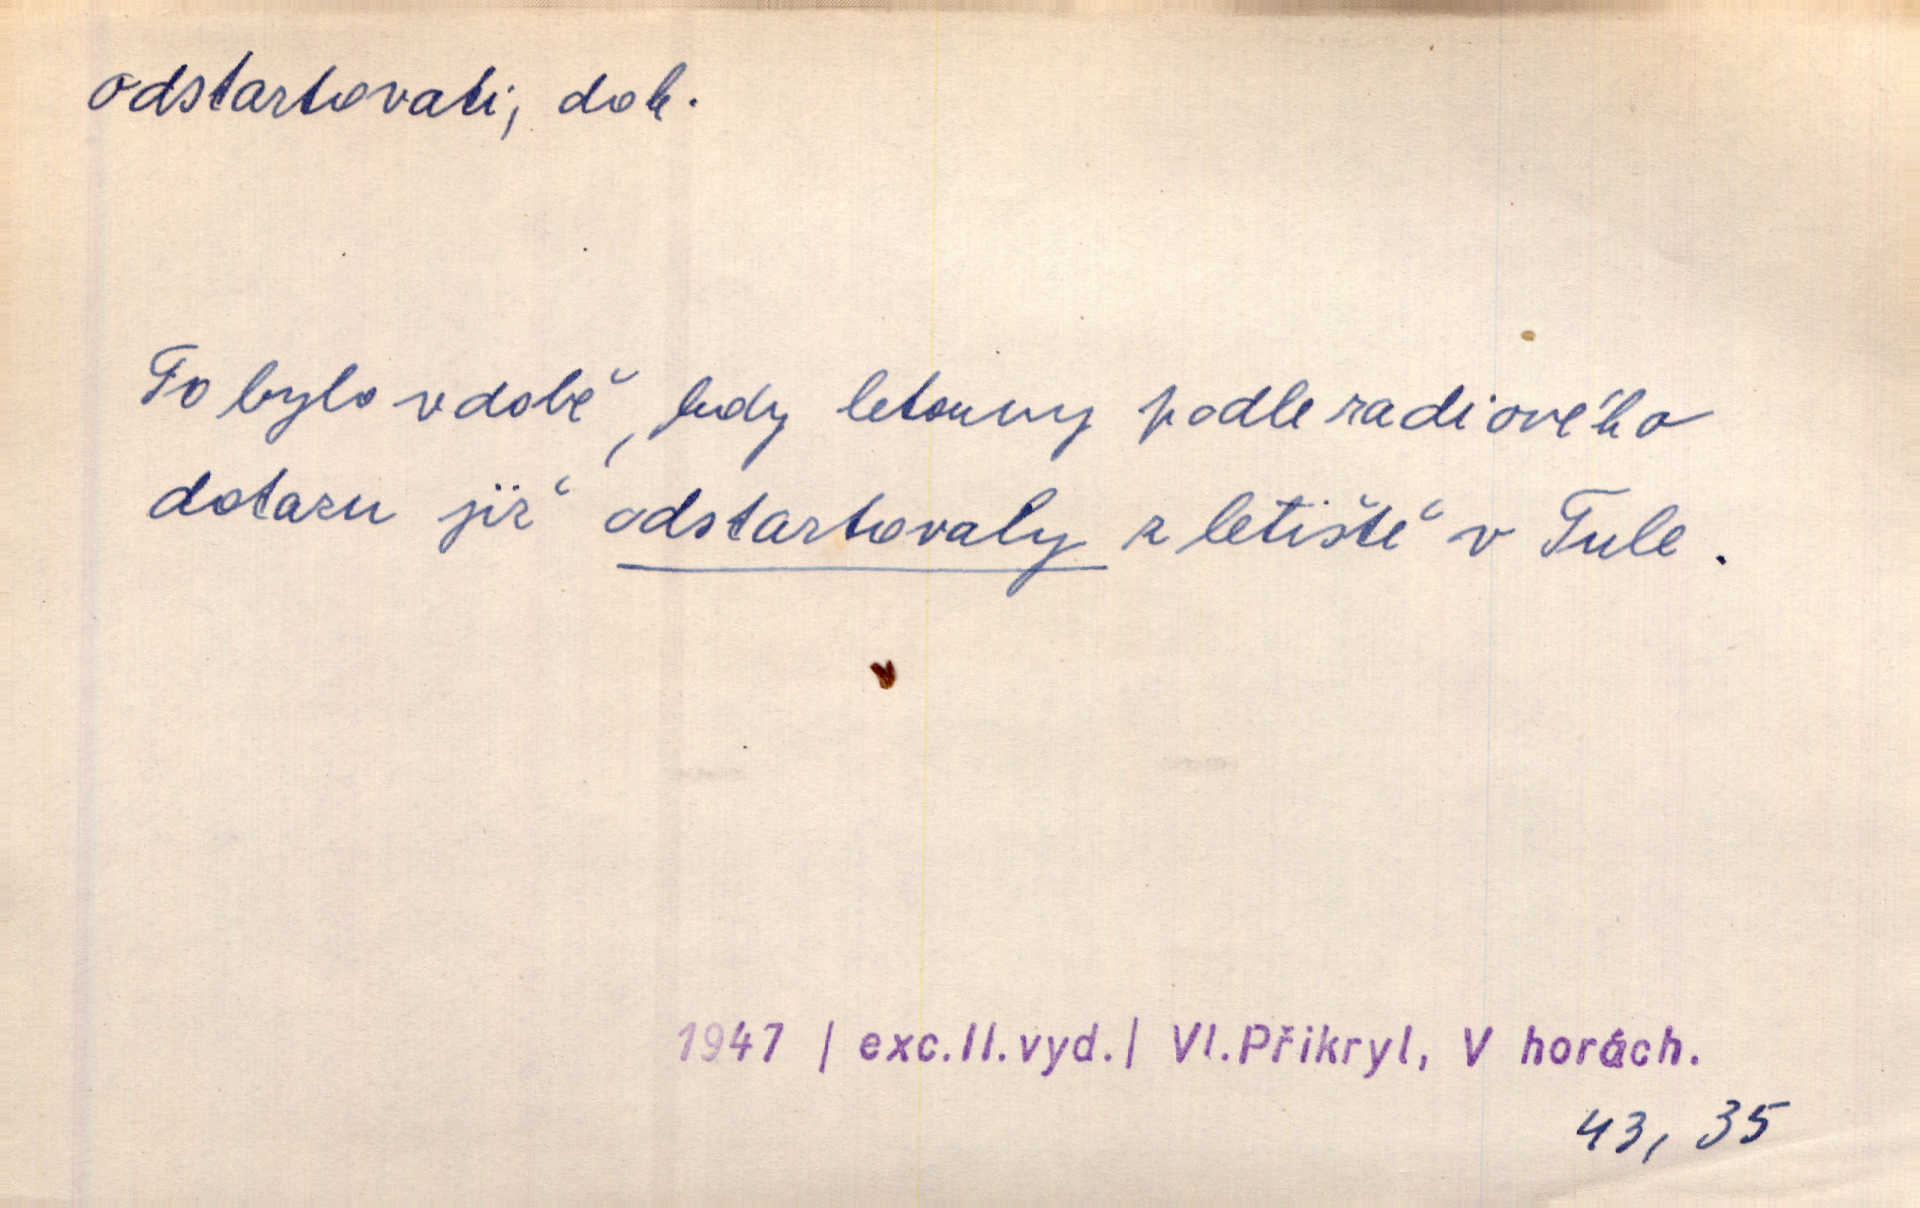 odstartovati, dok.
To bylo v době, kdy letouny podle radiového
dotazu již odstartovaly z letiště v Tule.
1947 / exc.II.vyd./ Vl.Přikryl, V horách.
43, 35